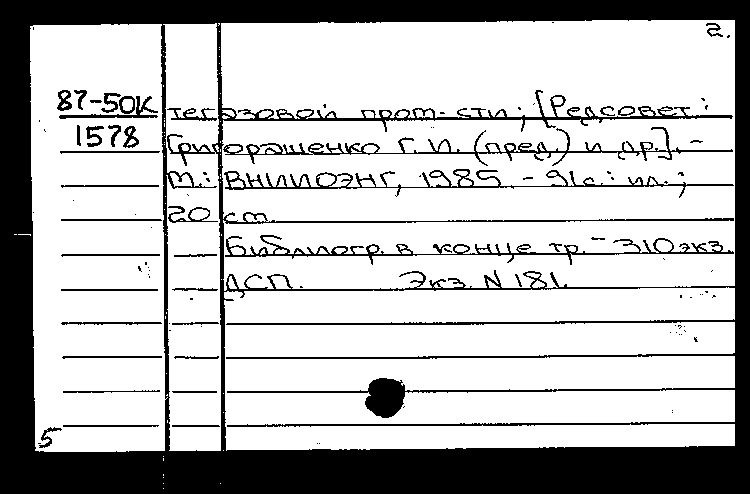 2.
87-50К тегазовой пром-сти; [Редсовет:
1578 Григорашенко Г. И. (пред.) и др.]. -
М.: ВНИИОЭНГ, 1985. - 91с.: ил.;
20 см.
Библиогр. в конце тр. - 310 экз.
ДСП. Экз. N 181.
5